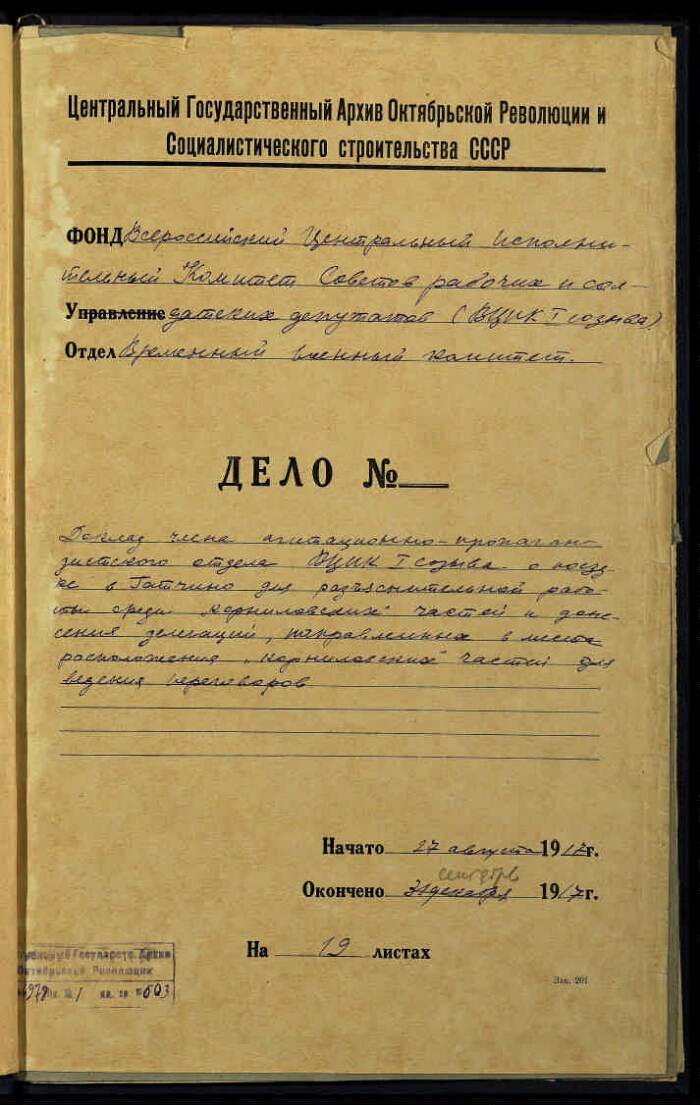 Центральный Государственный Архив Октябрьской Революции и
Социалистического строительства СССР
ФОНД Всероссийский Центральный Исполни-
тельный Комитет Советов рабочих и сол-
Управление датских депутатов (ВЦИК I созыва).
Отдел Временный военный комитет.
ДЕЛО №
Доклад члена агитационно-пропаган-
дистского отдела ВЦИК I созыва о поезд
ке в Гатчино для разъяснительной рабо-
ты среди "корниловских" частей и доне-
сения делегаций, направленных в места
расположения "корниловских" частей для
ведения переговоров
Начато 27 августа 1917г.
сентября
Окончено декабря 1917г.
На 19 листах
Государств. Архив
Октябрьской Революции
503
Зак. 201